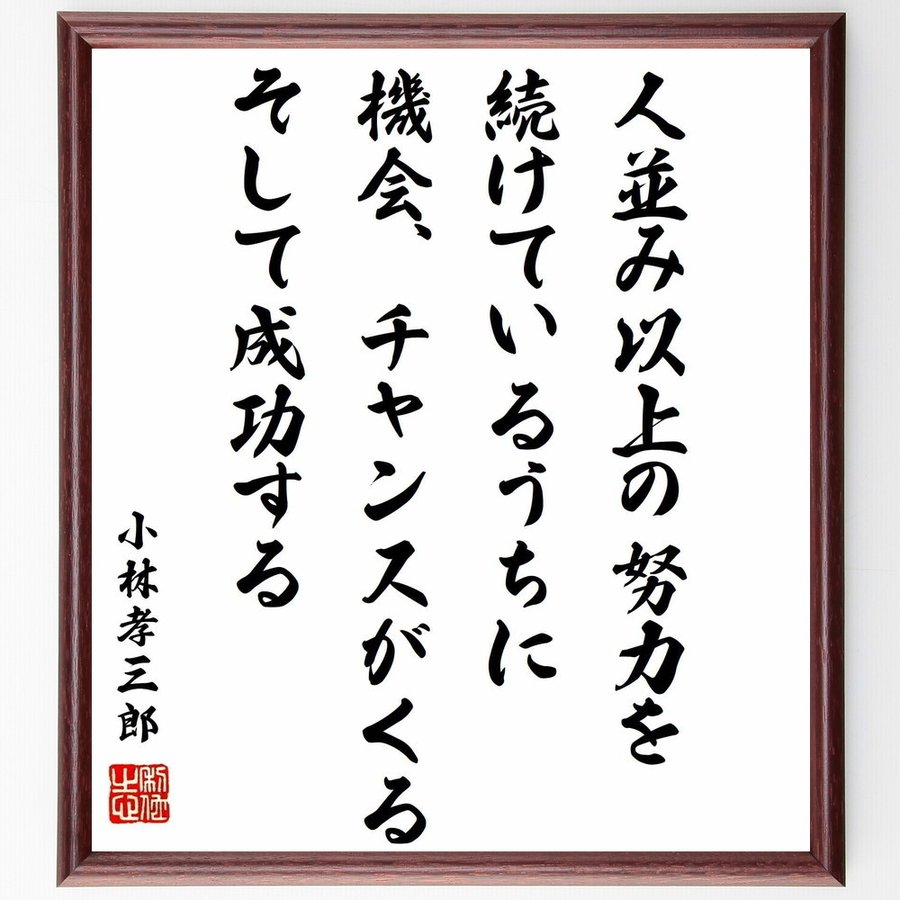 人並み以上の努力を
続けているうちに
機会、チャンスがくる
そして成功する
小林孝三郎